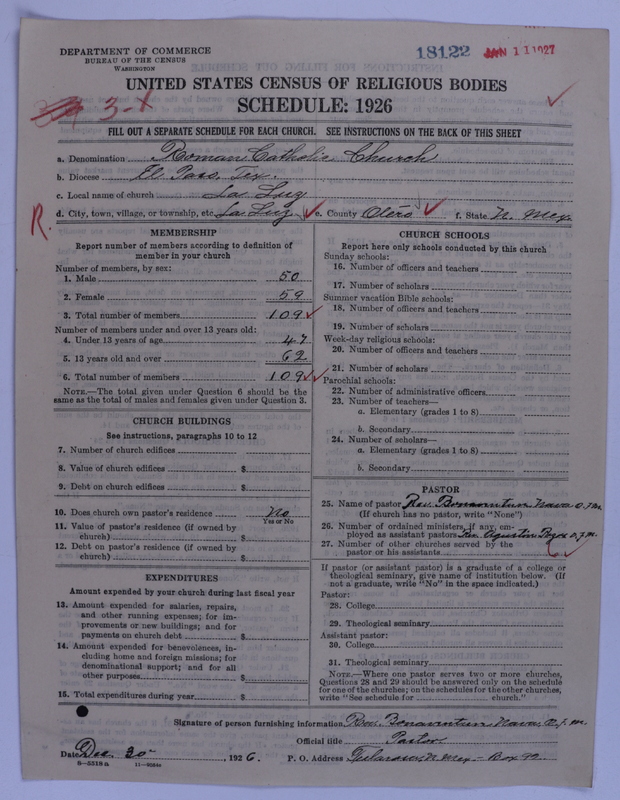 DEPARTMENT OF COMMERCE
BUREAU OF THE CENSUS
WASHINGTON
18122 JAN 11 1927
UNITED STATES CENSUS OF RELIGIOUS BODIES
3-1 SCHEDULE: 1926
FILL OUT A SEPARATE SCHEDULE FOR EACH CHURCH. SEE INSTRUCTIONS ON THE BACK OF THIS SHEET
a. Denomination Roman Catholic Church
b. Diocese El Paso, Tex.
c. Local name of church La Luz
R. d. City, town, village, or township, etc. La Luz e. County Otero f. State N. Mex.
MEMBERSHIP
Report number of members according to definition of
member in your church
Number of members, by sex:
1. Male 50
2. Female 59
3. Total number of members 109
Number of members under and over 13 years old:
4. Under 13 years of age 47
5. 13 years old and over 62
6. Total number of members 109
NOTE.—The total given under Question 6 should be the
same as the total of males and females given under Question 3.
CHURCH BUILDINGS
See instructions, paragraphs 10 to 12
7. Number of church edifices
8. Value of church edifices $
9. Debt on church edifices $
10. Does church own pastor's residence No
Yes or No
11. Value of pastor's residence (if owned by
church) $
12. Debt on pastor's residence (if owned by
church) $
EXPENDITURES
Amount expended by your church during last fiscal year
13. Amount expended for salaries, repairs,
and other running expenses; for im-
provements or new buildings; and for
payments on church debt $
14. Amount expended for benevolences, in-
cluding home and foreign missions; for
denominational support; and for all
other purposes $
15. Total expenditures during year $
CHURCH SCHOOLS
Report here only schools conducted by this church
Sunday schools:
16. Number of officers and teachers
17. Number of scholars
Summer vacation Bible schools:
18. Number of officers and teachers
19. Number of scholars
Week-day religious schools:
20. Number of officers and teachers
21. Number of scholars
Parochial schools:
22. Number of administrative officers
23. Number of teachers—
a. Elementary (grades 1 to 8)
b. Secondary
24. Number of scholars—
a. Elementary (grades 1 to 8)
b. Secondary
PASTOR
25. Name of pastor Rev. Bonaventura Nava O.F.M.
(If church has no pastor, write "None")
26. Number of ordained ministers, if any, em-
ployed as assistant pastors Rev. Agustin O.F.M.
27. Number of other churches served by the
pastor or his assistants 6
If pastor (or assistant pastor) is a graduate of a college or
theological seminary, give name of institution below. (If
not a graduate, write "No" in the space indicated.)
Pastor:
28. College
29. Theological seminary
Assistant pastor:
30. College
31. Theological seminary
NOTE.—Where one pastor serves two or more churches,
Questions 28 and 29 should be answered only on the schedule
for one of the churches; on the schedules for the other churches,
write "See schedule for church."
Signature of person furnishing information Rev. Bonaventura Nava, O.F.M.
Official title Pastor
Date Dec. 30 , 1926. P. O. Address Tularosa, N. Mex. – Box 92.
6—5518 a